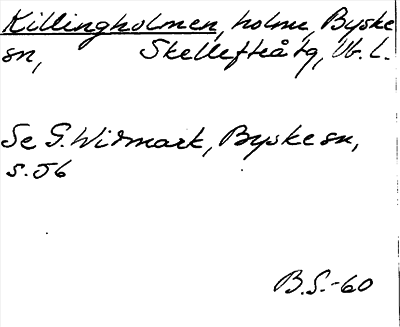 Killingholmen, holme, Byske
sn, Skellefteå tg, Vb. L.
Se G. Widmark, Byske sn,
s. 56
B.S.-60